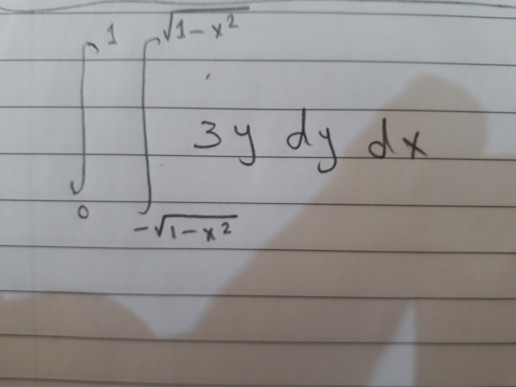 ∫₀¹ ∫_{-√(1-x²)}^{√(1-x²)} 3y dy dx